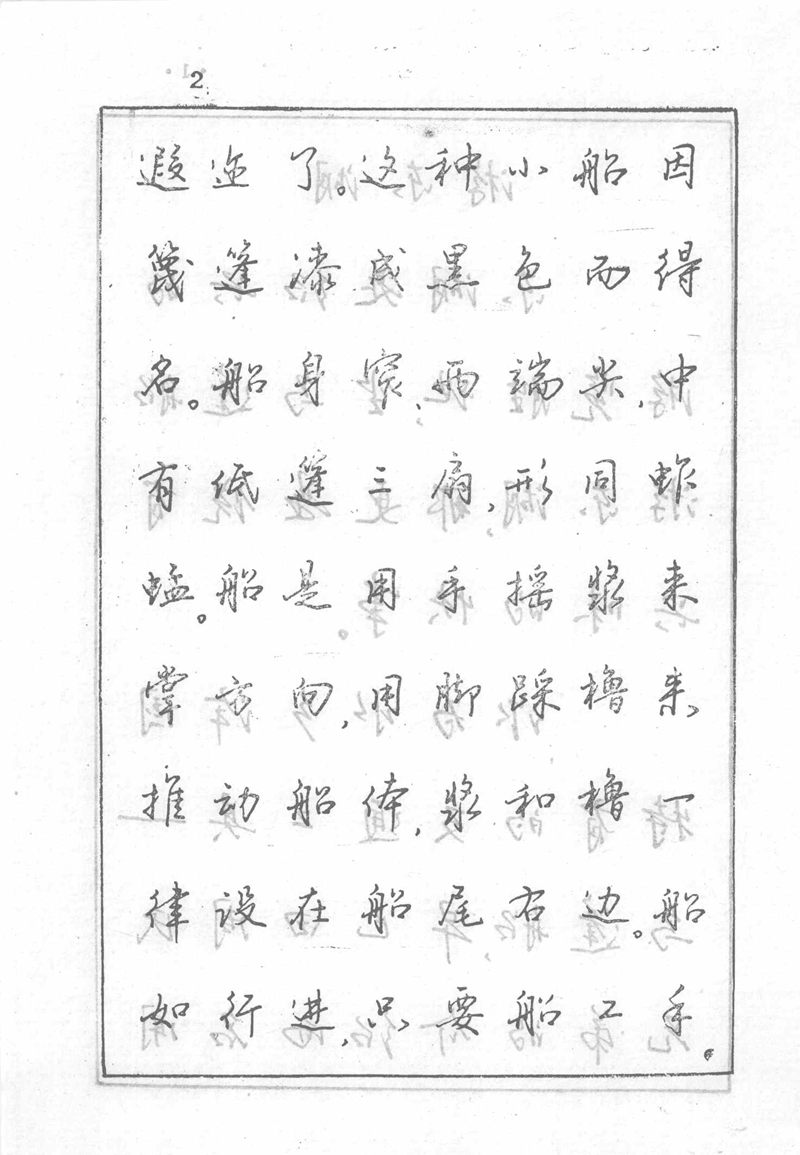 2
遐迩了。这种小船因
篾篷漆成黑色而得
名。船身窄，两端尖，中
有低篷三扇，形同蚱
蜢。船是用手摇桨来
掌方向，用脚踩橹来
推动船体，桨和橹一
律设在船尾右边。船
如行进，只要船工手